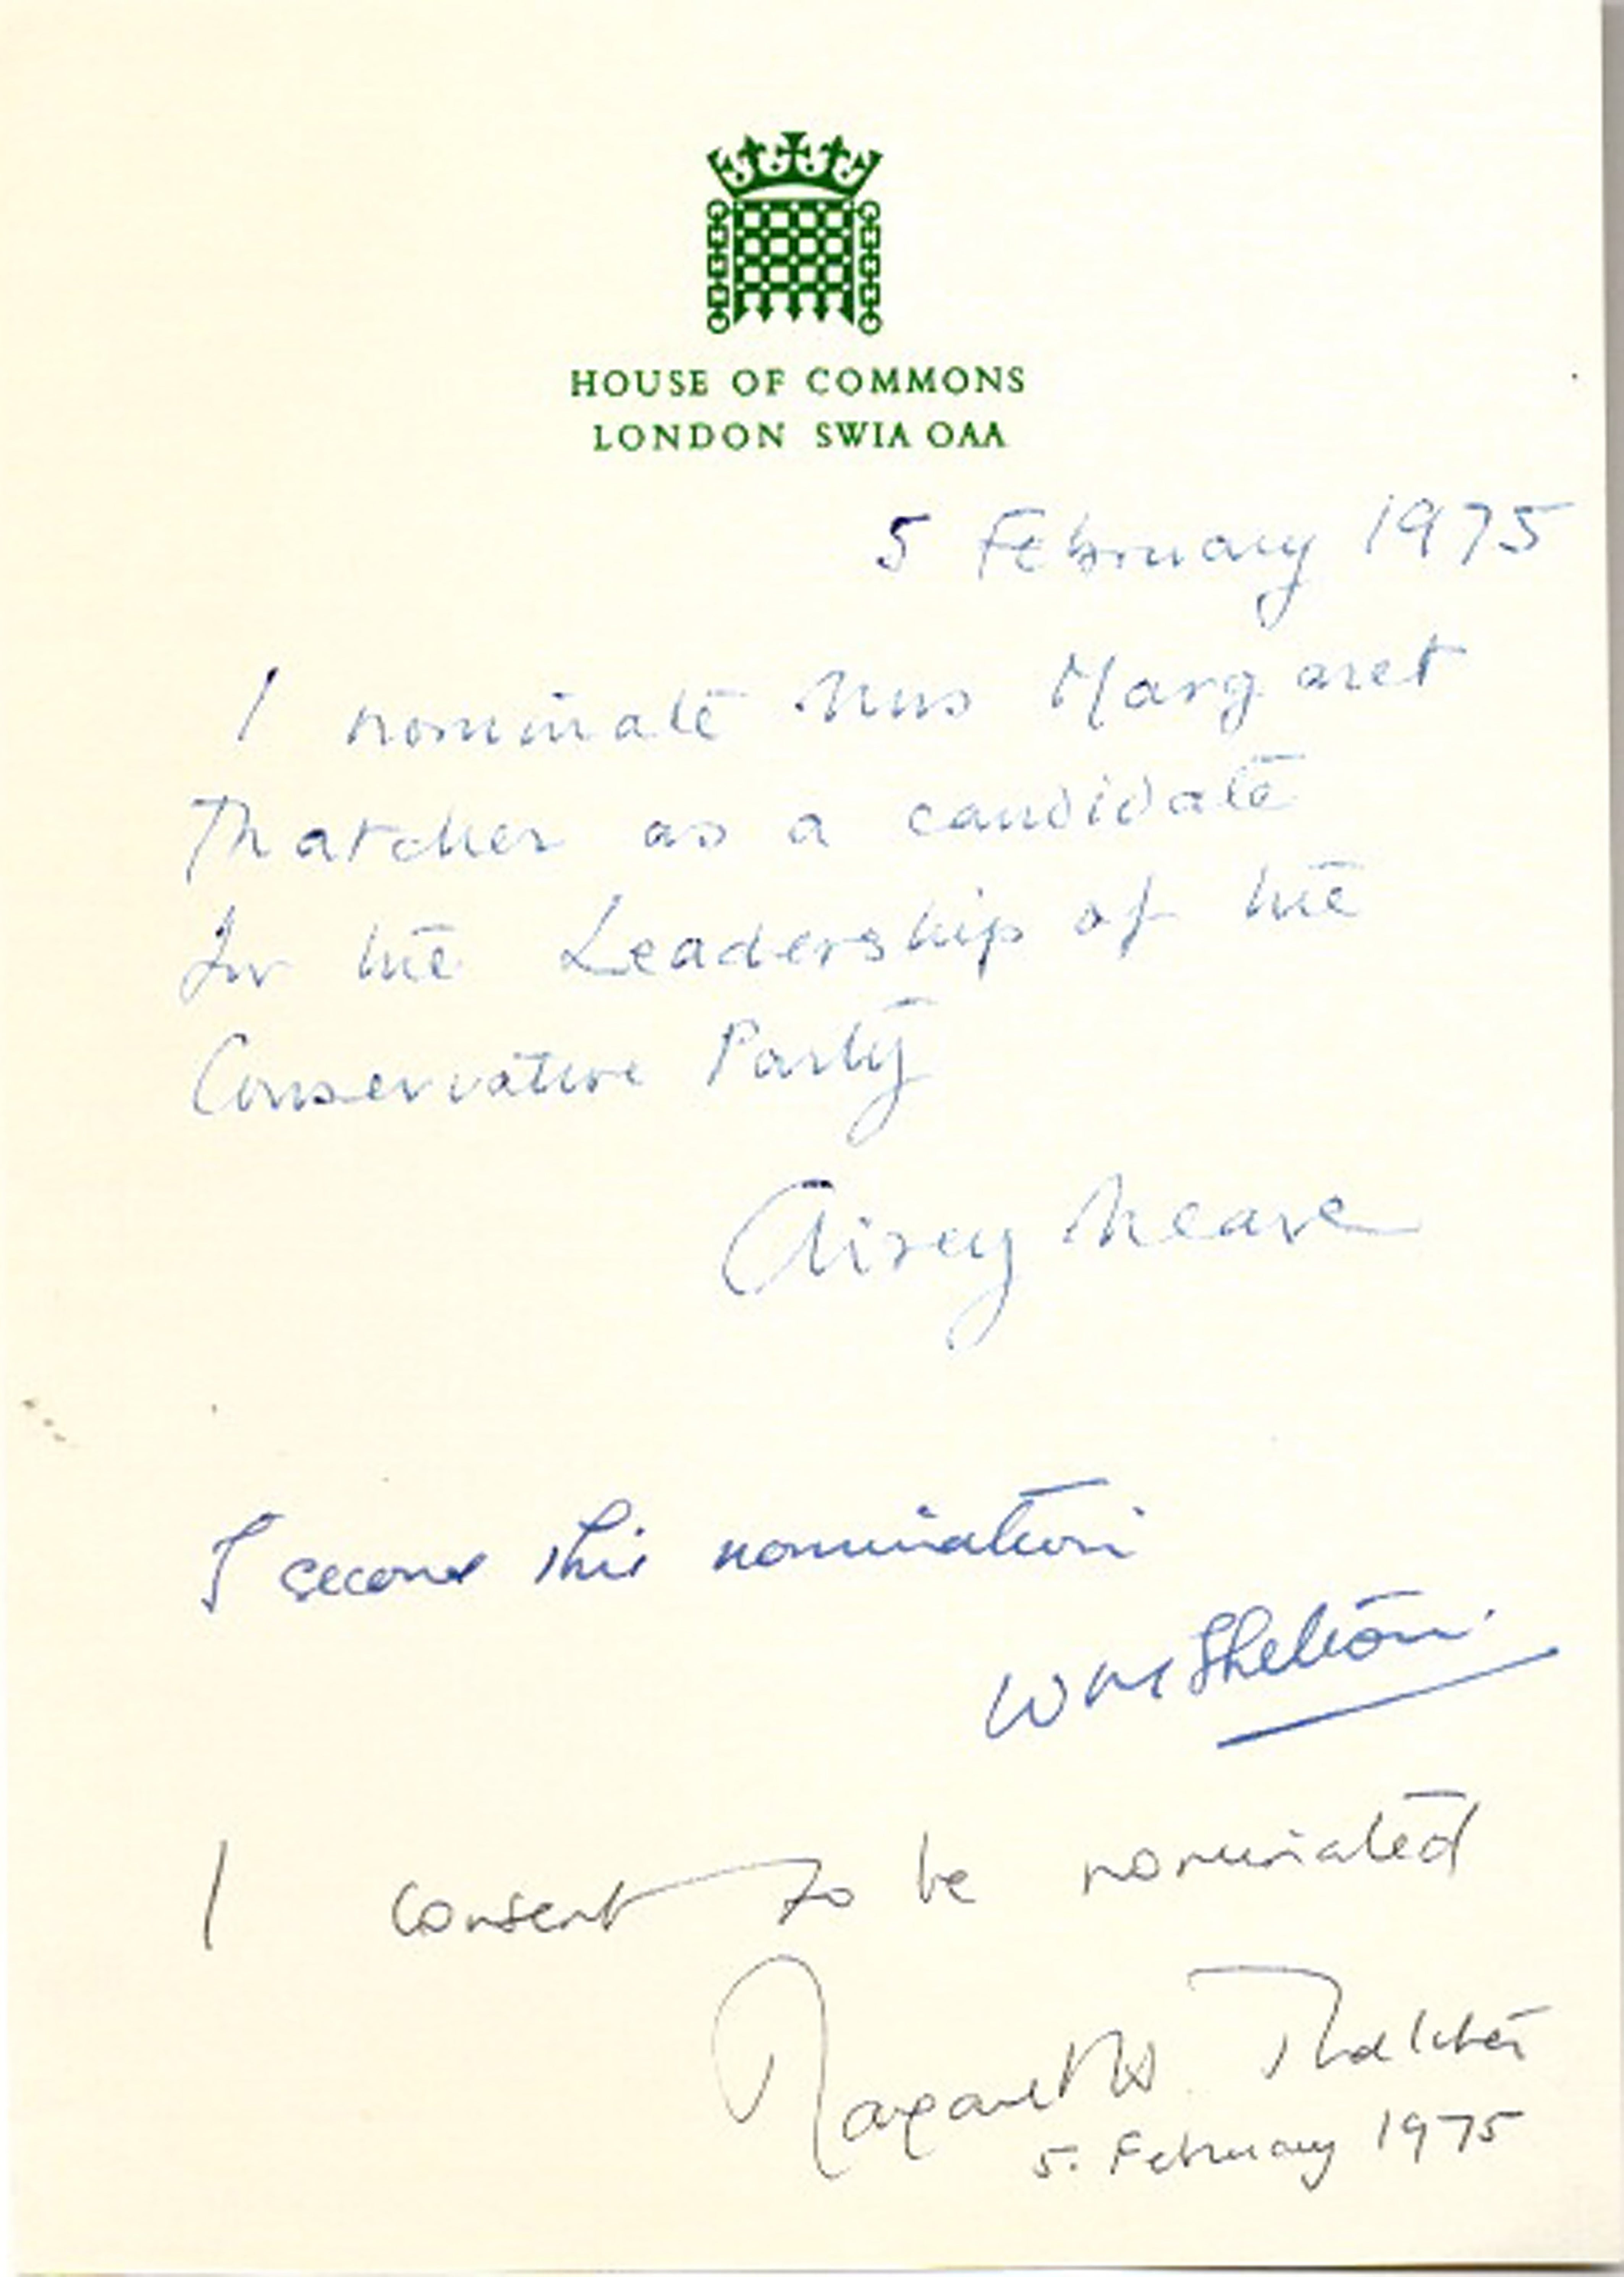 HOUSE OF COMMONS
LONDON SW1A 0AA
5 February 1975
I nominate Mrs Margaret
Thatcher as a candidate
for the Leadership of the
Conservative Party
Airey Neave
I second this nomination
W M Shelton.
I consent to be nominated
Margaret H. Thatcher
5. February 1975